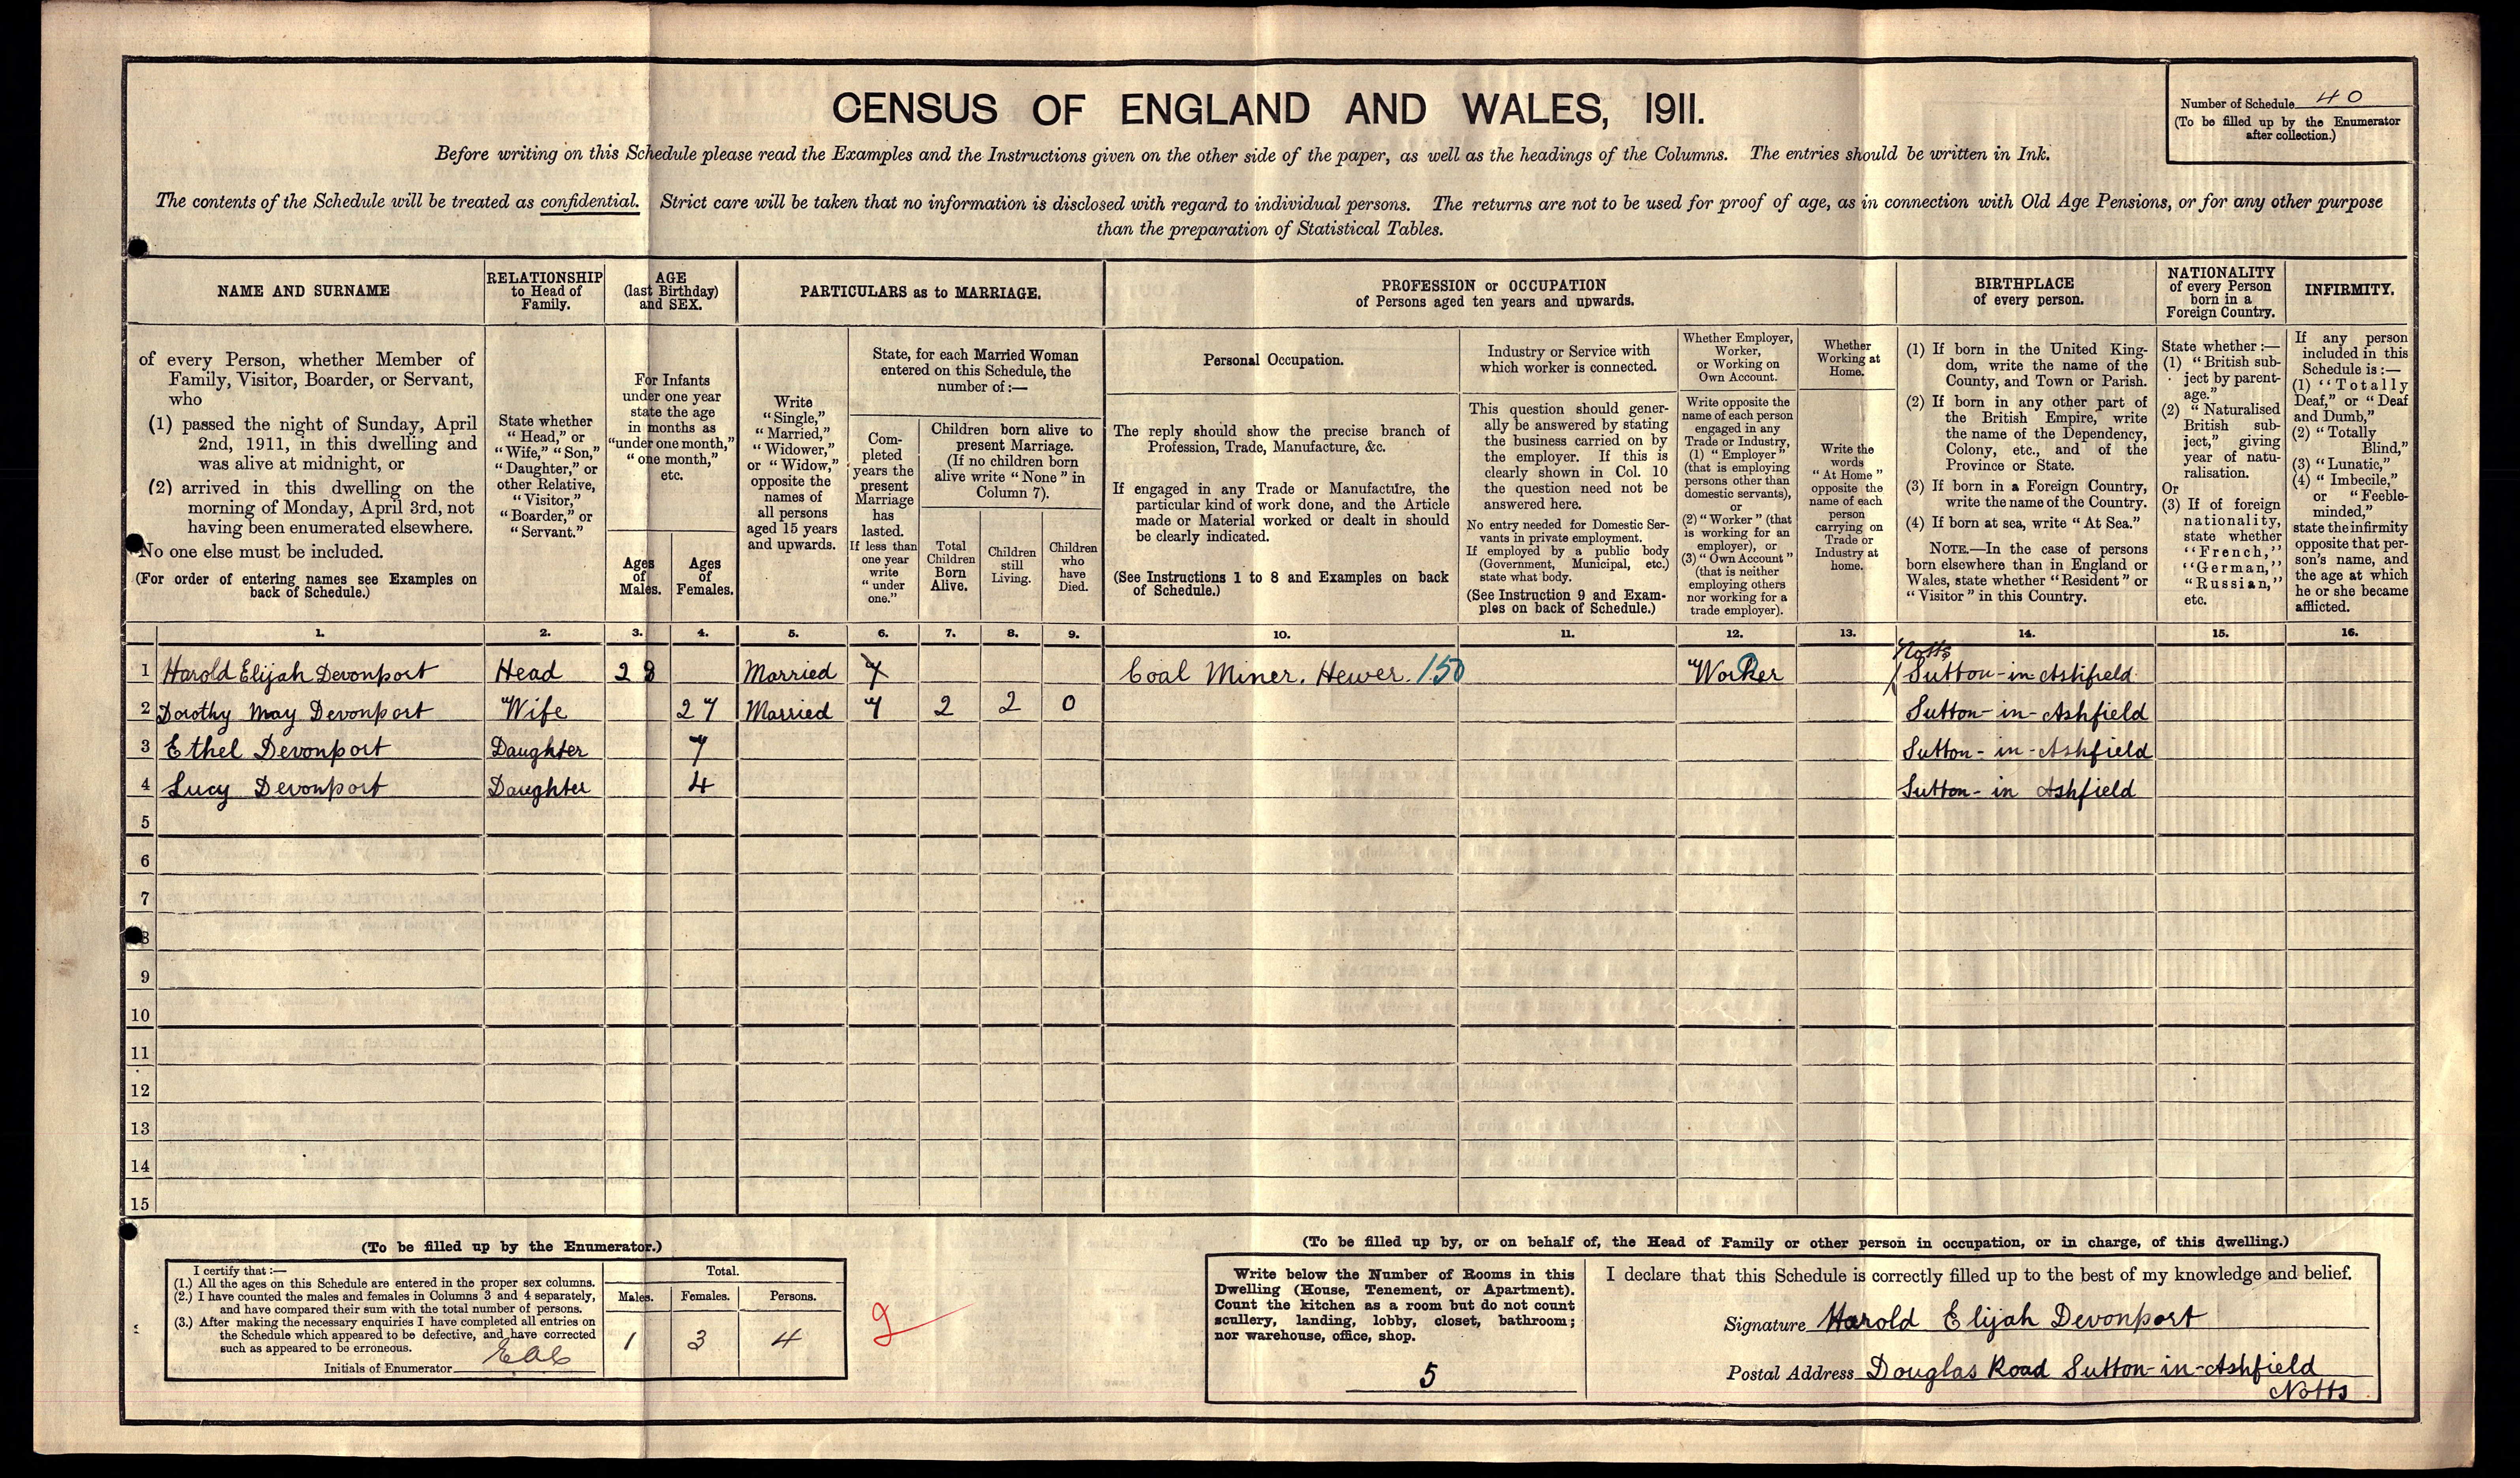 CENSUS OF ENGLAND AND WALES, 1911.
Number of Schedule 40
(To be filled up by the Enumerator
after collection.)
Before writing on this Schedule please read the Examples and the Instructions given on the other side of the paper, as well as the headings of the Columns. The entries should be written in Ink.
The contents of the Schedule will be treated as confidential. Strict care will be taken that no information is disclosed with regard to individual persons. The returns are not to be used for proof of age, as in connection with Old Age Pensions, or for any other purpose
than the preparation of Statistical Tables.
NAME AND SURNAME
of every Person, whether Member of
Family, Visitor, Boarder, or Servant,
who
(1) passed the night of Sunday, April
2nd, 1911, in this dwelling and
was alive at midnight, or
(2) arrived in this dwelling on the
morning of Monday, April 3rd, not
having been enumerated elsewhere.
No one else must be included.
(For order of entering names see Examples on
back of Schedule.)
RELATIONSHIP
to Head of
Family.
State whether
"Head," or
"Wife," "Son,"
"Daughter," or
other Relative,
"Visitor,"
"Boarder," or
"Servant."
AGE
(last Birthday)
and SEX.
For Infants
under one year
state the age
in months as
"under one month,"
"one month,"
etc.
Ages
of
Males.
Ages
of
Females.
PARTICULARS as to MARRIAGE.
Write
"Single,"
"Married,"
"Widower,"
or "Widow,"
opposite the
names of
all persons
aged 15 years
and upwards.
State, for each Married Woman
entered on this Schedule, the
number of:—
Com-
pleted
years the
present
Marriage
has
lasted.
If less than
one year
write
"under
one."
Children born alive to
present Marriage.
(If no children born
alive write "None" in
Column 7).
Total
Children
Born
Alive.
Children
still
Living.
Children
who
have
Died.
PROFESSION or OCCUPATION
of Persons aged ten years and upwards.
Personal Occupation.
The reply should show the precise branch of
Profession, Trade, Manufacture, &c.
If engaged in any Trade or Manufacture, the
particular kind of work done, and the Article
made or Material worked or dealt in should
be clearly indicated.
(See Instructions 1 to 8 and Examples on back
of Schedule.)
Industry or Service with
which worker is connected.
This question should gener-
ally be answered by stating
the business carried on by
the employer. If this is
clearly shown in Col. 10
the question need not be
answered here.
No entry needed for Domestic Ser-
vants in private employment.
If employed by a public body
(Government, Municipal, etc.)
state what body.
(See Instruction 9 and Exam-
ples on back of Schedule.)
Whether Employer,
Worker,
or Working on
Own Account.
Write opposite the
name of each person
engaged in any
Trade or Industry,
(1) "Employer"
(that is employing
persons other than
domestic servants),
or
(2) "Worker" (that
is working for an
employer), or
(3) "Own Account"
(that is neither
employing others
nor working for a
trade employer).
Whether
Working at
Home.
Write the
words
"At Home"
opposite the
name of each
person
carrying on
Trade or
Industry at
home.
BIRTHPLACE
of every person.
(1) If born in the United King-
dom, write the name of the
County, and Town or Parish.
(2) If born in any other part of
the British Empire, write
the name of the Dependency,
Colony, etc., and of the
Province or State.
(3) If born in a Foreign Country,
write the name of the Country.
(4) If born at sea, write "At Sea."
NOTE.—In the case of persons
born elsewhere than in England or
Wales, state whether "Resident" or
"Visitor" in this Country.
NATIONALITY
of every Person
born in a
Foreign Country.
State whether:—
(1) "British sub-
ject by parent-
age."
(2) "Naturalised
British sub-
ject," giving
year of natu-
ralisation.
Or
(3) If of foreign
nationality,
state whether
"French,"
"German,"
"Russian,"
etc.
INFIRMITY.
If any person
included in this
Schedule is:—
(1) "Totally
Deaf," or "Deaf
and Dumb,"
(2) "Totally
Blind,"
(3) "Lunatic,"
(4) "Imbecile,"
or "Feeble-
minded,"
state the infirmity
opposite that per-
son's name, and
the age at which
he or she became
afflicted.
1. 2. 3. 4. 5. 6. 7. 8. 9. 10. 11. 12. 13. 14. 15. 16.
Notts
1 Harold Elijah Devonport Head 28 Married 7 Coal Miner. Hewer. 150 Worker Sutton-in-Ashfield
2 Dorothy May Devonport Wife 27 Married 7 2 2 0 Sutton-in-Ashfield
3 Ethel Devonport Daughter 7 Sutton-in-Ashfield
4 Lucy Devonport Daughter 4 Sutton-in Ashfield
5
6
7
8
9
10
11
12
13
14
15
(To be filled up by the Enumerator.)
I certify that:—
(1.) All the ages on this Schedule are entered in the proper sex columns.
(2.) I have counted the males and females in Columns 3 and 4 separately,
and have compared their sum with the total number of persons.
(3.) After making the necessary enquiries I have completed all entries on
the Schedule which appeared to be defective, and have corrected
such as appeared to be erroneous.
Initials of Enumerator
Total.
Males. Females. Persons.
1 3 4
(To be filled up by, or on behalf of, the Head of Family or other person in occupation, or in charge, of this dwelling.)
Write below the Number of Rooms in this
Dwelling (House, Tenement, or Apartment).
Count the kitchen as a room but do not count
scullery, landing, lobby, closet, bathroom;
nor warehouse, office, shop.
5
I declare that this Schedule is correctly filled up to the best of my knowledge and belief.
Signature Harold Elijah Devonport
Postal Address Douglas Road Sutton-in-Ashfield
Notts